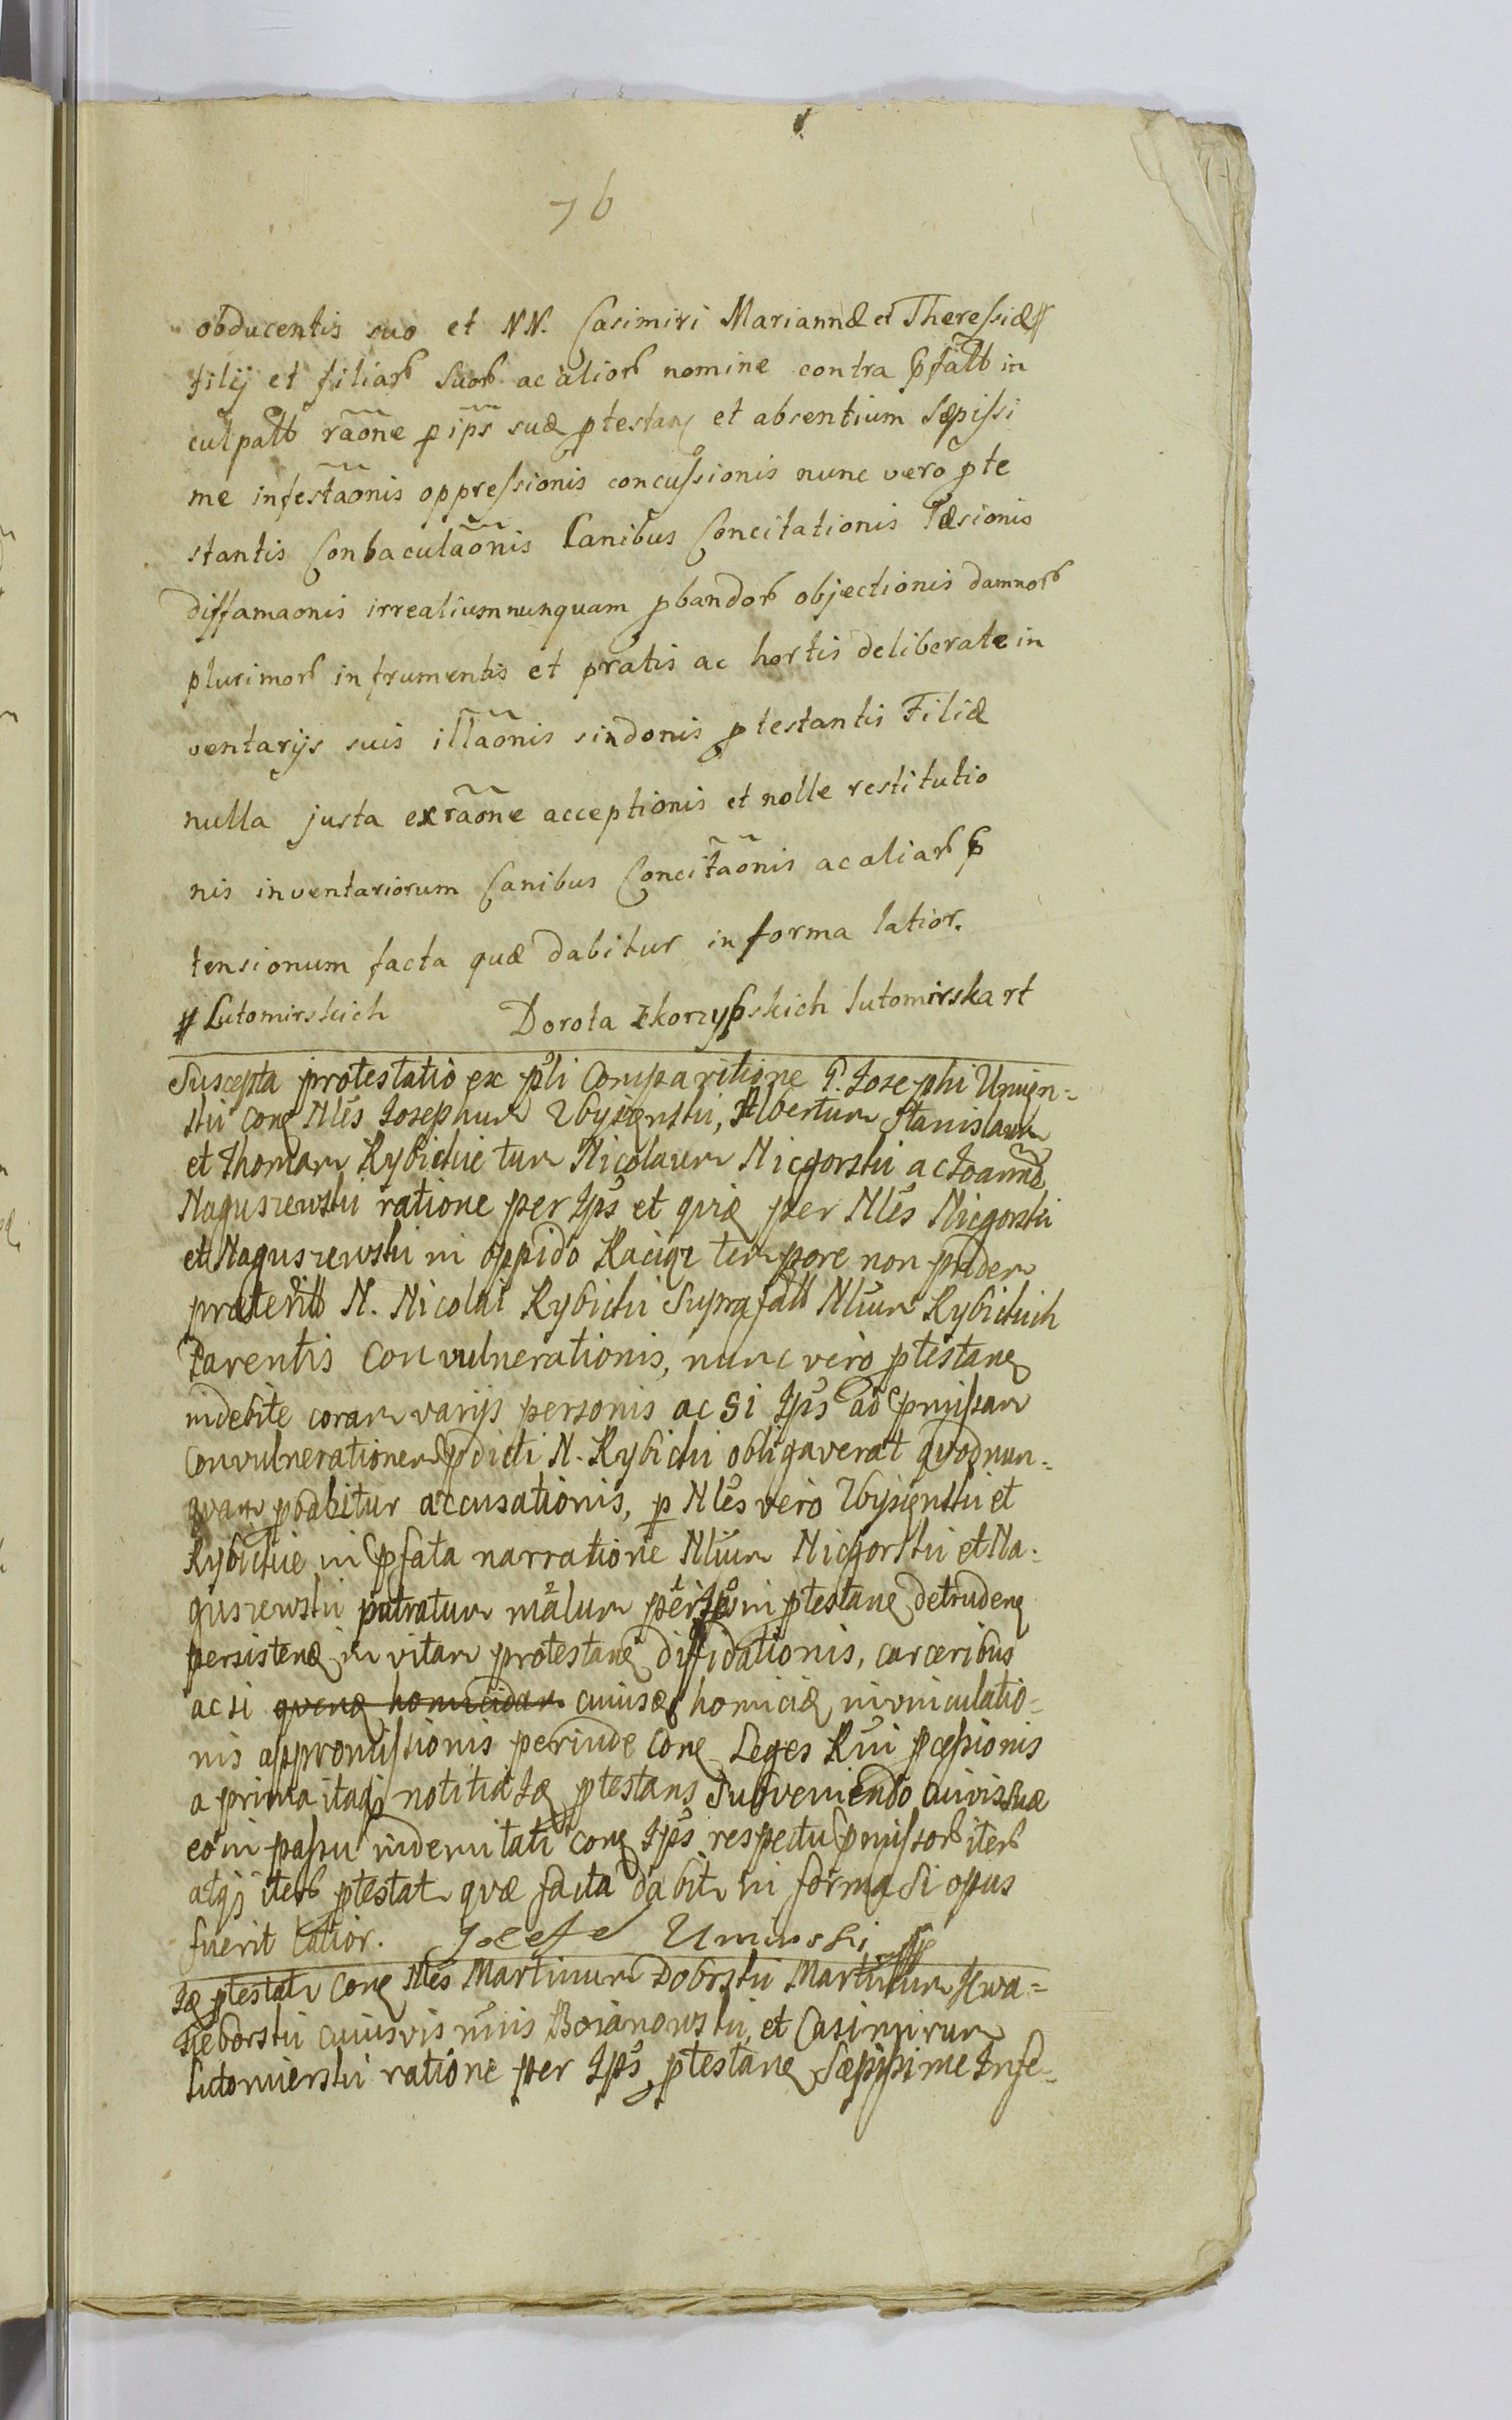 76
obducentis suo et NN. Casimiri Mariannæ et Theressiæ #
filij et filiarb suorb ac aliorb nomine contra pfattb in
culpattb raõne p ips suæ ptestanς et absentium sæpissi
me infestaõnis oppressionis concussionis nunc vero pte
stantis Conbaculaõnis Canibus Concitationis læsionis
diffamaonis irrealium nunquam pbandorb objectionis damnorb
plurimorb in frumentis et pratis ac hortis deliberate in
ventarijs suis illaõnis sindonis ptestantis Filiæ
nulla justa ex raõne acceptionis et nolle restitutio
nis inventariorum Canibus Concitaõnis ac aliarb p
tensionum facta quæ dabitur in forma latior.
# Lutomirskich Dorota zkorzypskich lutomirska rt
Suscepta protestatio ex psli Comparitione G. Josephi Umien=
ski conς Nles Josephum Ubysięnski, Albertum Stanislaum
et Thomam Rybickie tum Nicolaum Nicgorski ac Joannē
Naguszewski ratione per Jps et quiæ per Nles Nicgorski
et Naguszewski in oppido Raciąz tempore non pridem
præteritb N. Nicolai Rybicki Suprafattb Nlium Rybickich
Parentis Convulnerationis, nunc vero ptestanς
indebite coram varijs personis ac si Jps ad pmissam
convulnerationem pdicti N. Rybicki obligaverat quod nun=
quam pbabitur accusationis, p Nles vero Ubysięnski et
Rybickie in pfata narratione Nlium Nicgorski et Na=
guszewski patratum malum per Jpos in ptestanς detrudenς
persistenς in vitam protestanς diffidationis, carceribus
ac si quenς homicidam cuiusς homiciæ invinculatio=
nis appromissionis perinde conς Leges Rni pcessionis
a prima itaqȝ notitia Jæ ptestans Subveniendo cuivis suæ
eo in passu indemnitati conς Jps respectu pmissorb iterb
atqȝ iterb ptestatr quæ facta dabitr in forma si opus
fuerit latior. Jozef Uminski mp
Jæ ptestatr conς Nles Martinum Dobrski Martinum Kwa=
sieborski cuiusvis nnis Boianowski, et Casimirum
Lutomierski ratione per Jps ptestanς Sæpissime Infe=